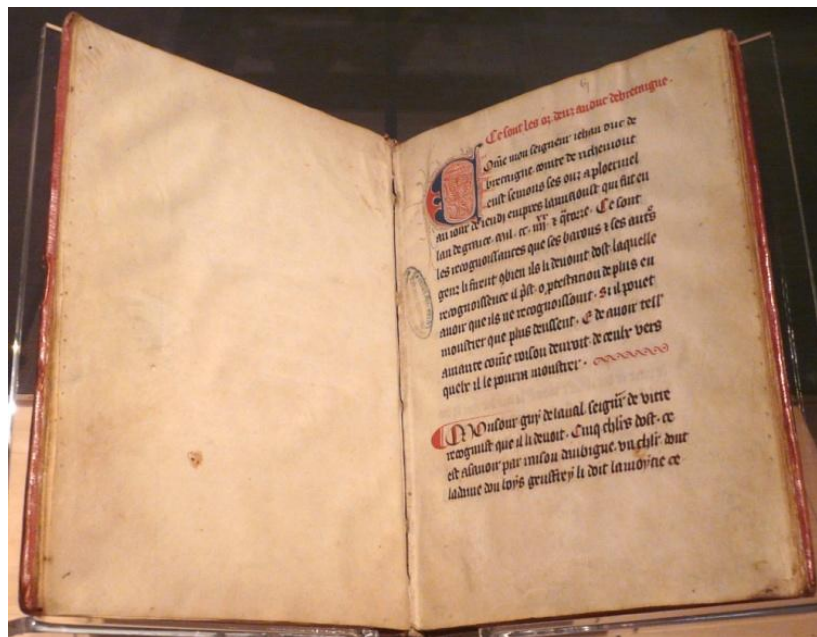 Ce sont les oz deuz au duc de bretaigne.
Come mon seigneur iehan duc de
bretaigne. conte de richemont
eust semons ses ouz a ploermel
au iour de ieudi empres qui fut en
lan de grace. mil. cc. iiii xx & qtorze. Ce sont
les recognoissances que ses barons & ses autes
genz li firent obien ils li devoint dost. laquelle
recognoissence il pst. o ptestation de plus en
avoir que ils ne recognoissoint. Si il povet
moustrer que plus deussent. E de avoir tell'
amante come roison devroit. de ceulx vers
quelx il le pourra moustrer.
Monsour guy de laval. seignr de vitre
recognust que il li devoit. Cinq chlrs dost. ce
est asavoir par raison daubigne. un chlr. dont
la dame don loys li doit la moytie ce